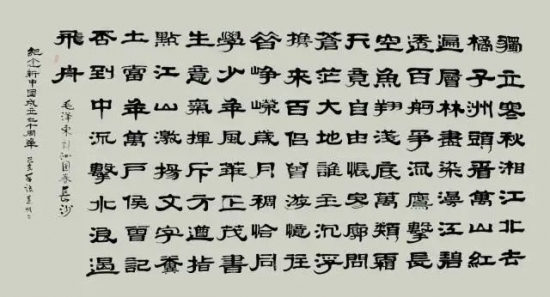 獨立寒秋湘江北去
橘子洲頭看萬山紅
遍層林盡染漫江碧
透百舸爭流鷹擊長
空魚翔淺底萬類霜
天競自由悵寥廓問
蒼茫大地誰主沉浮
攜來百侶曾遊憶往
昔崢嶸歲月稠恰同
學少年風華正茂書
生意氣揮斥方遒指
點江山激揚文字糞
土當年萬戶侯曾記
否到中流擊水浪遏
飛舟
毛泽東詞沁園春長沙
紀念新中国成立七十周年